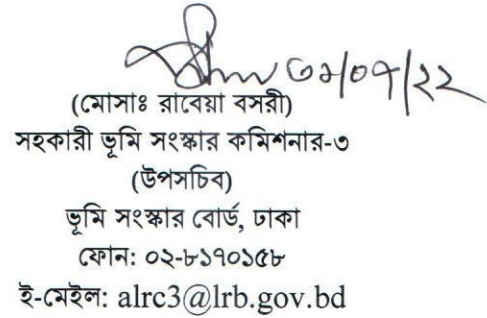 ০৯/০৭/২২
(মোসাঃ রাবেয়া বসরী)
সহকারী ভূমি সংস্কার কমিশনার-৩
(উপসচিব)
ভূমি সংস্কার বোর্ড, ঢাকা
ফোন: ০২-৮১৭০১৫৮
ই-মেইল: alrc3@lrb.gov.bd